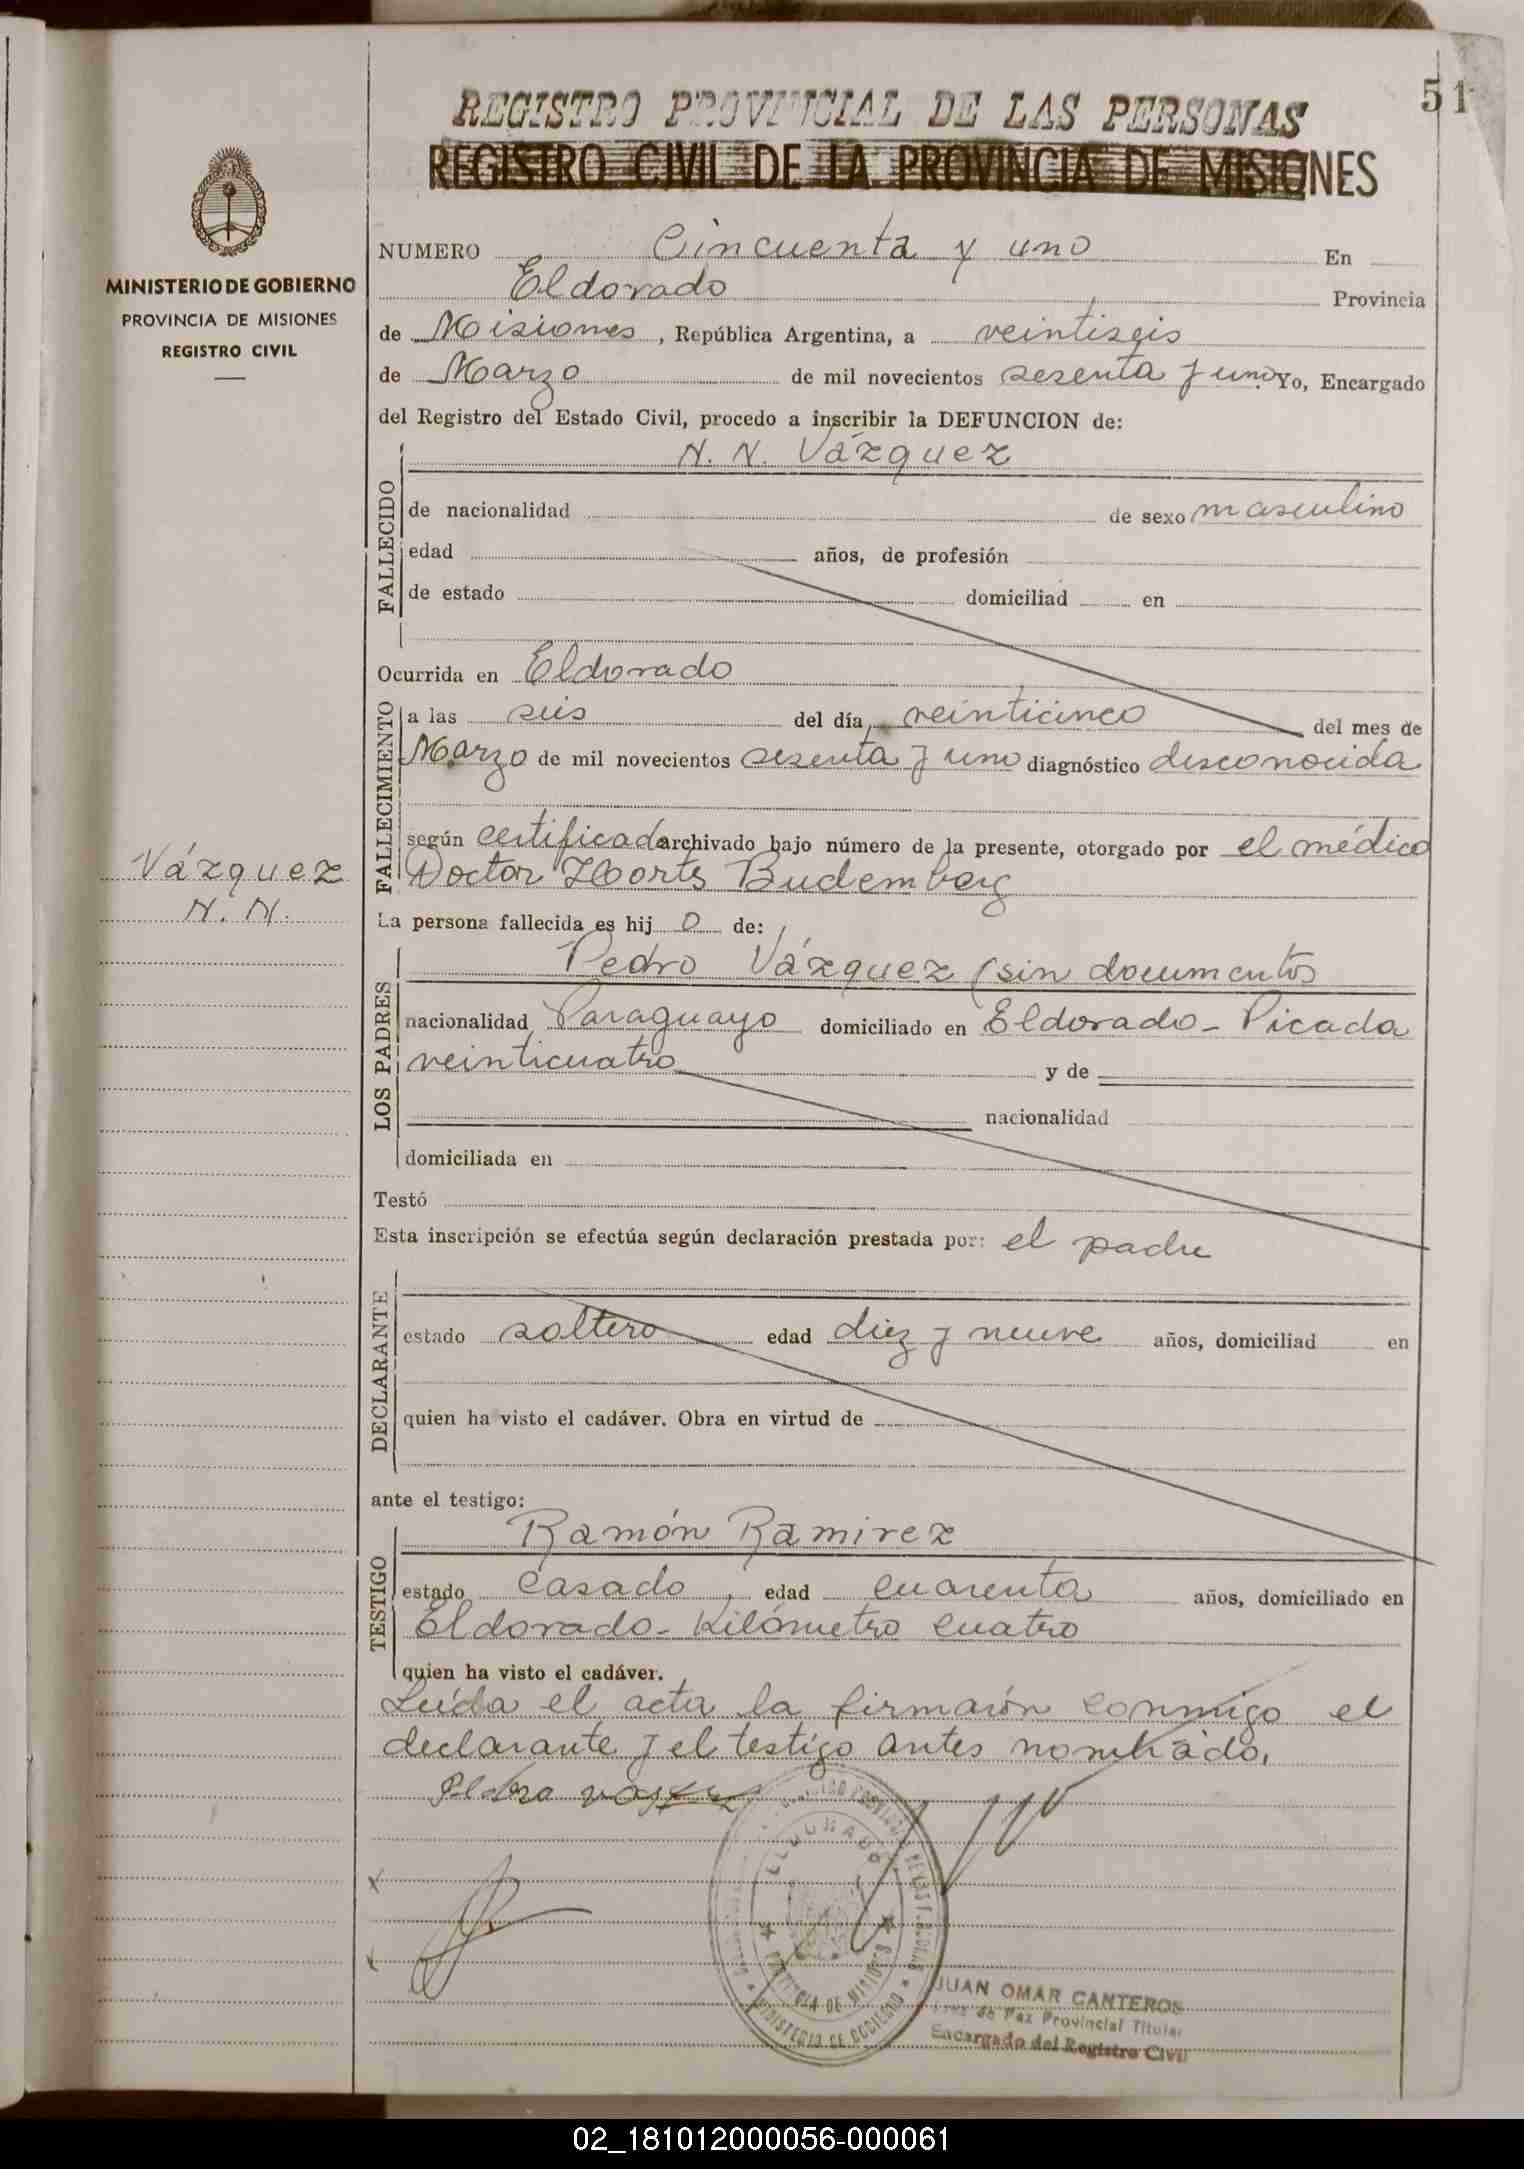 51
REGISTRO PROVINCIAL DE LAS PERSONAS
REGISTRO CIVIL DE LA PROVINCIA DE MISIONES
MINISTERIO DE GOBIERNO
PROVINCIA DE MISIONES
REGISTRO CIVIL
NUMERO Cincuenta y uno En
Eldorado Provincia
de Misiones, República Argentina, a veintiseis
de Marzo de mil novecientos sesenta y uno. Yo, Encargado
del Registro del Estado Civil, procedo a inscribir la DEFUNCION de:
N. N. Vázquez
FALLECIDO
de nacionalidad de sexo masculino
edad años, de profesión
de estado domiciliad en
Ocurrida en Eldorado
FALLECIMIENTO
a las seis del día veinticinco del mes de
Marzo de mil novecientos sesenta y uno diagnóstico desconocida
según certificado archivado bajo número de la presente, otorgado por el médico
Doctor Horts Budemberg
Vázquez
N. N.
La persona fallecida es hij o de:
LOS PADRES
Pedro Vázquez (sin documentos
nacionalidad Paraguayo domiciliado en Eldorado - Picada
veinticuatro y de
nacionalidad
domiciliada en
Testó
Esta inscripción se efectúa según declaración prestada por: el padre
DECLARANTE
estado soltero edad diez y nueve años, domiciliad en
quien ha visto el cadáver. Obra en virtud de
ante el testigo:
TESTIGO
Ramón Ramirez
estado Casado, edad cuarenta años, domiciliado en
Eldorado - Kilómetro cuatro
quien ha visto el cadáver.
Leída el acta la firmarón conmigo el
declarante y el testigo antes nombrado.
Pedro
ELDORADO
PROVINCIA DE MISIONES
MINISTERIO DE GOBIERNO
JUAN OMAR CANTEROS
Juez de Paz Provincial Titular
Encargado del Registro Civil
02_181012000056-000061